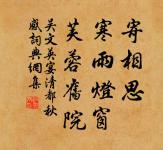 寄相思
寒雨燈窗
芙蓉舊院
吳文英宴清都秋
感詞典網集